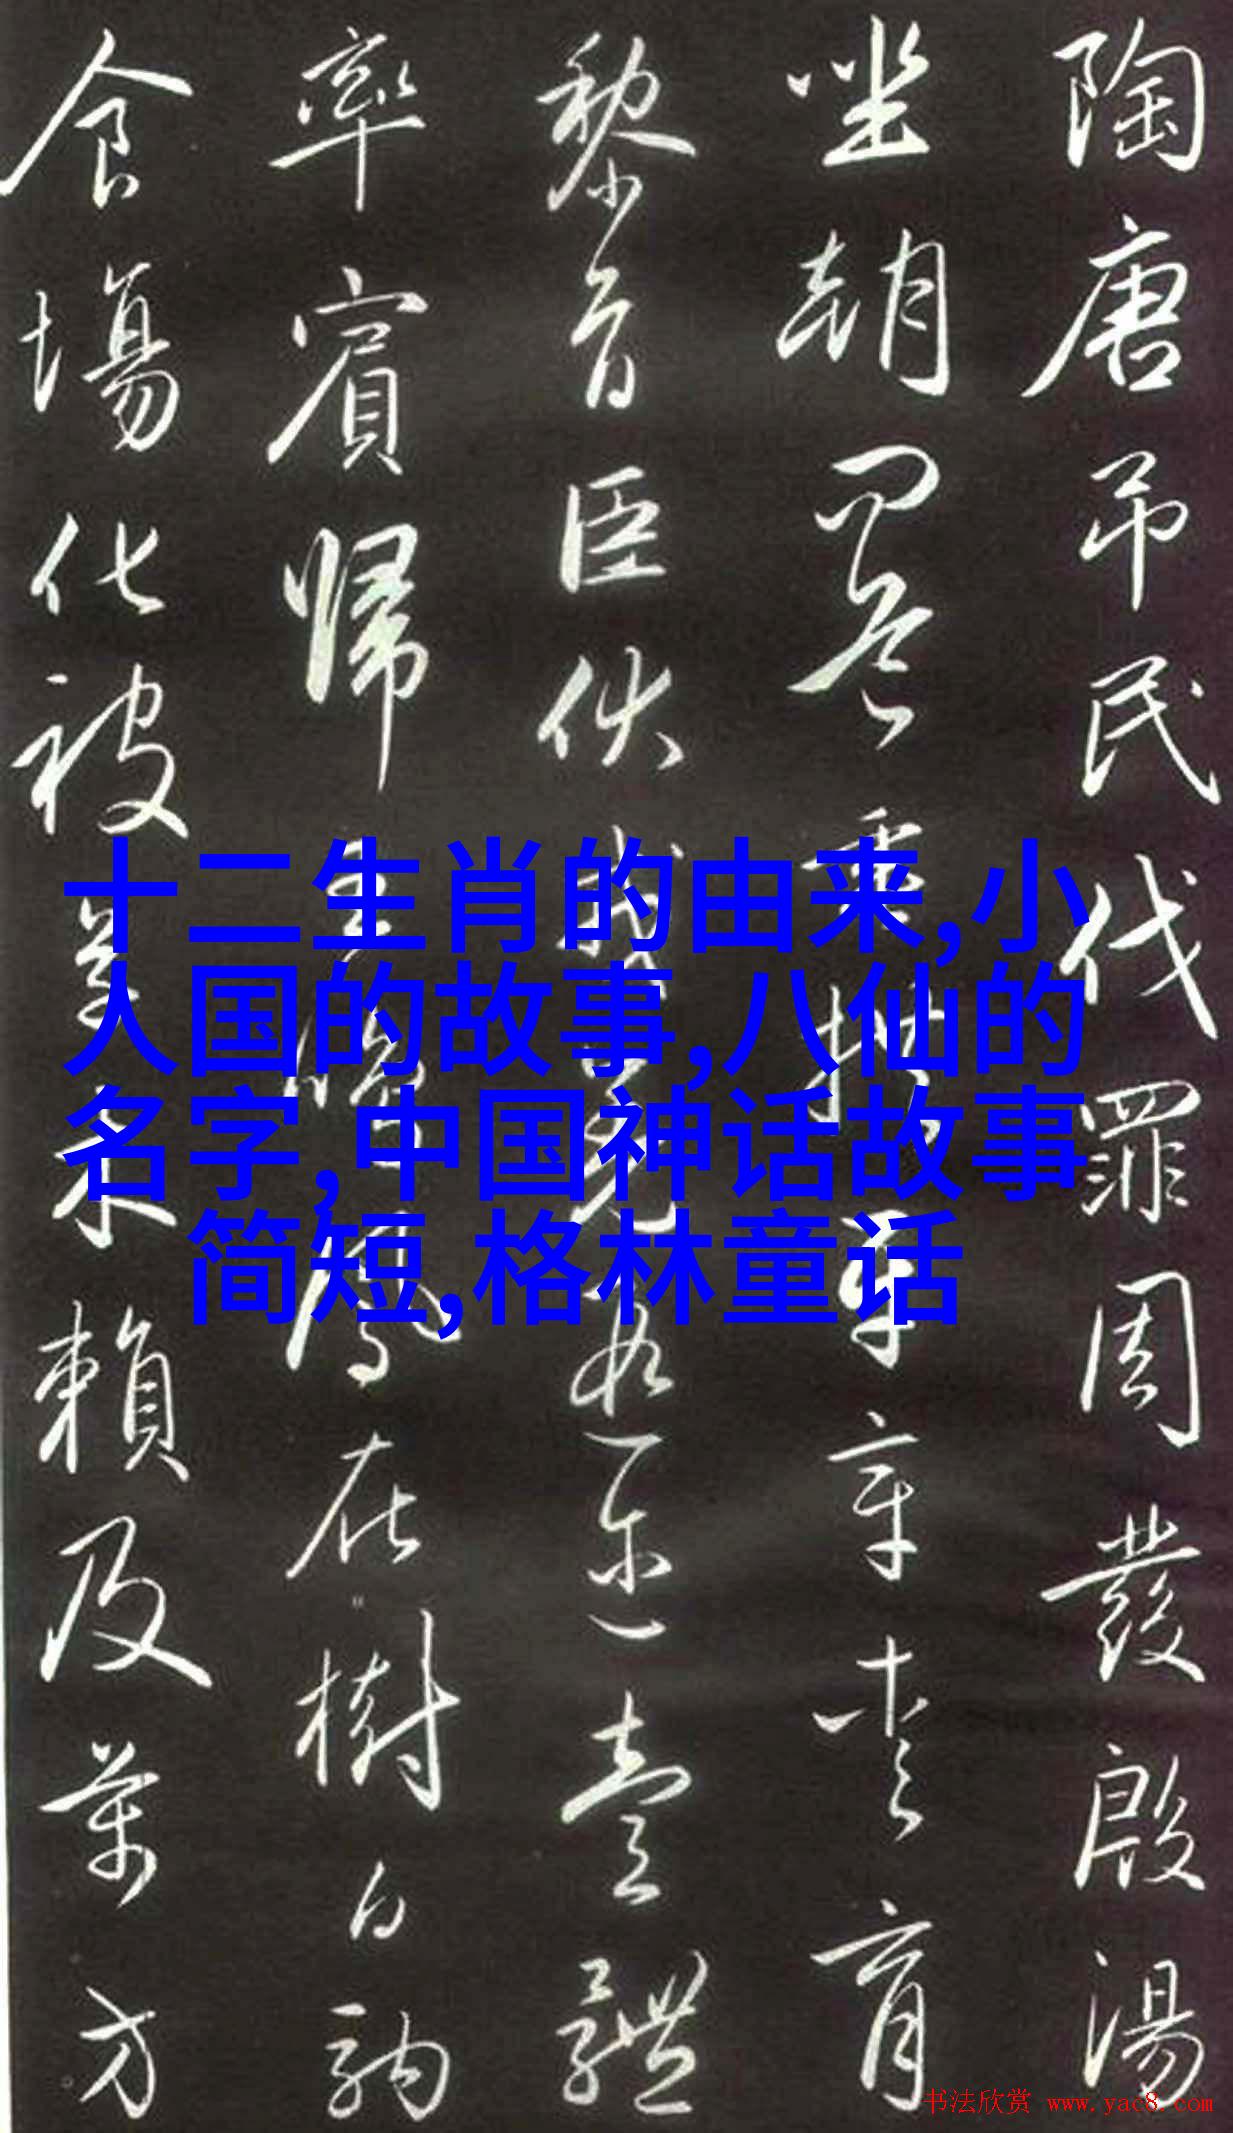 陶唐吊民伐罪周發殷湯
坐朝問道垂拱平章愛育
黎首臣伏戎羌遐迩壹體
率賓歸王鳴鳳在樹白駒
食場化被草木賴及萬方
十二生肖的由来,小
人国的故事,八仙的
名字,中国神话故事
简短,格林童话
书法欣赏 www.yac8.com